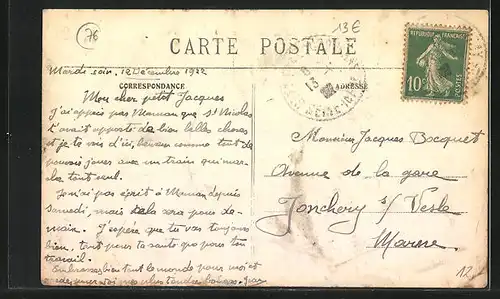 76
13€
CARTE POSTALE
RÉPUBLIQUE FRANÇAISE
10c
POSTES
Mardi soir, 12 Décembre 1922
CORRESPONDANCE
ADRESSE
Mon cher petit Jacques
J'ai appris par Maman que St Nicolas
t'avait apporté de bien belles choses
et je te vois d'ici, heureux comme tout de
pouvoir jouer avec un train qui mar-
che tout seul.
Je n'ai pas écrit à Maman depuis
samedi, mais cela sera pour de-
main. J'espère que tu vas toujours
bien, tant pour ta santé que pour ton
travail.
Embrasse bien tout le monde pour moi et
pour toi mes plus tendres baisers.
Monsieur Jacques Bocquet
Avenue de la gare
Jonchery s/ Vesle
Marne
12